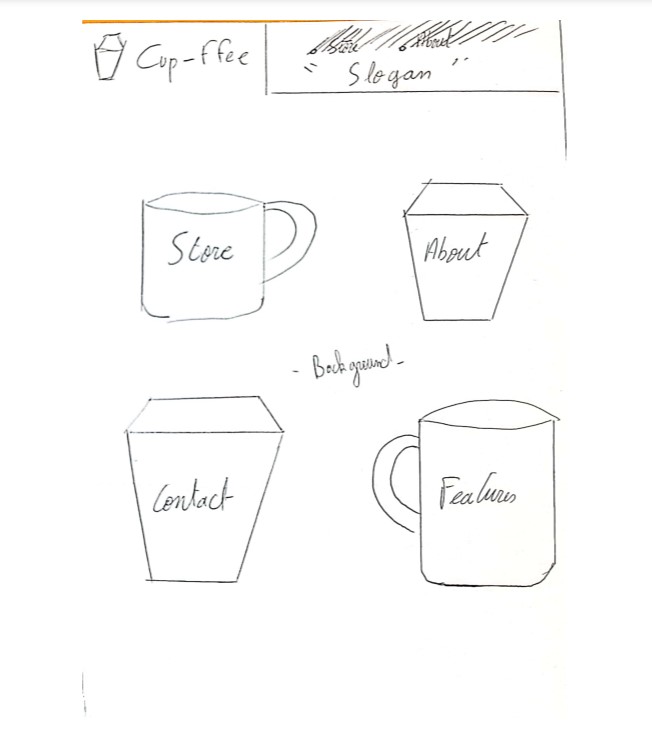 Cup-ffee
Store About
" Slogan "
Store
About
- Background -
Contact
Features